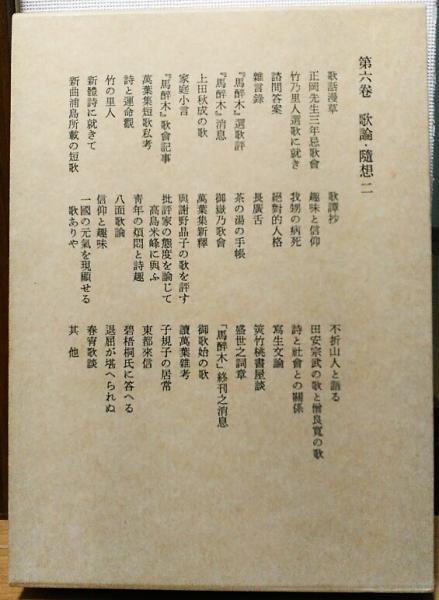 第六卷　歌論・隨想 二
歌話漫草
正岡先生三年忌歌會
竹乃里人選歌に就き
諮問答案
雜言錄
『馬醉木』選歌評
『馬醉木』消息
上田秋成の歌
家庭小言
『馬醉木』歌會記事
萬葉集短歌私考
詩と運命觀
竹の里人
新體詩に就きて
新曲浦島所載の短歌
歌譚抄
趣味と信仰
我甥の病死
絕對的人格
長廣舌
茶の湯の手帳
御嶽乃歌會
萬葉集新釋
與謝野晶子の歌を評す
批評家の態度を論じて
高島米峰に與ふ
靑年の煩悶と詩趣
八面歌論
信仰と趣味
一國の元氣を現顯せる
歌ありや
不折山人と語る
田安宗武の歌と僧良寬の歌
詩と社會との關係
寫生文論
筴竹桃書屋談
盛世之詞章
「馬醉木」終刊之消息
御歌始の歌
讀萬葉雜考
子規子の居常
東都來信
碧梧桐氏に答へる
退屈が堪へられぬ
春宵歌談
其他